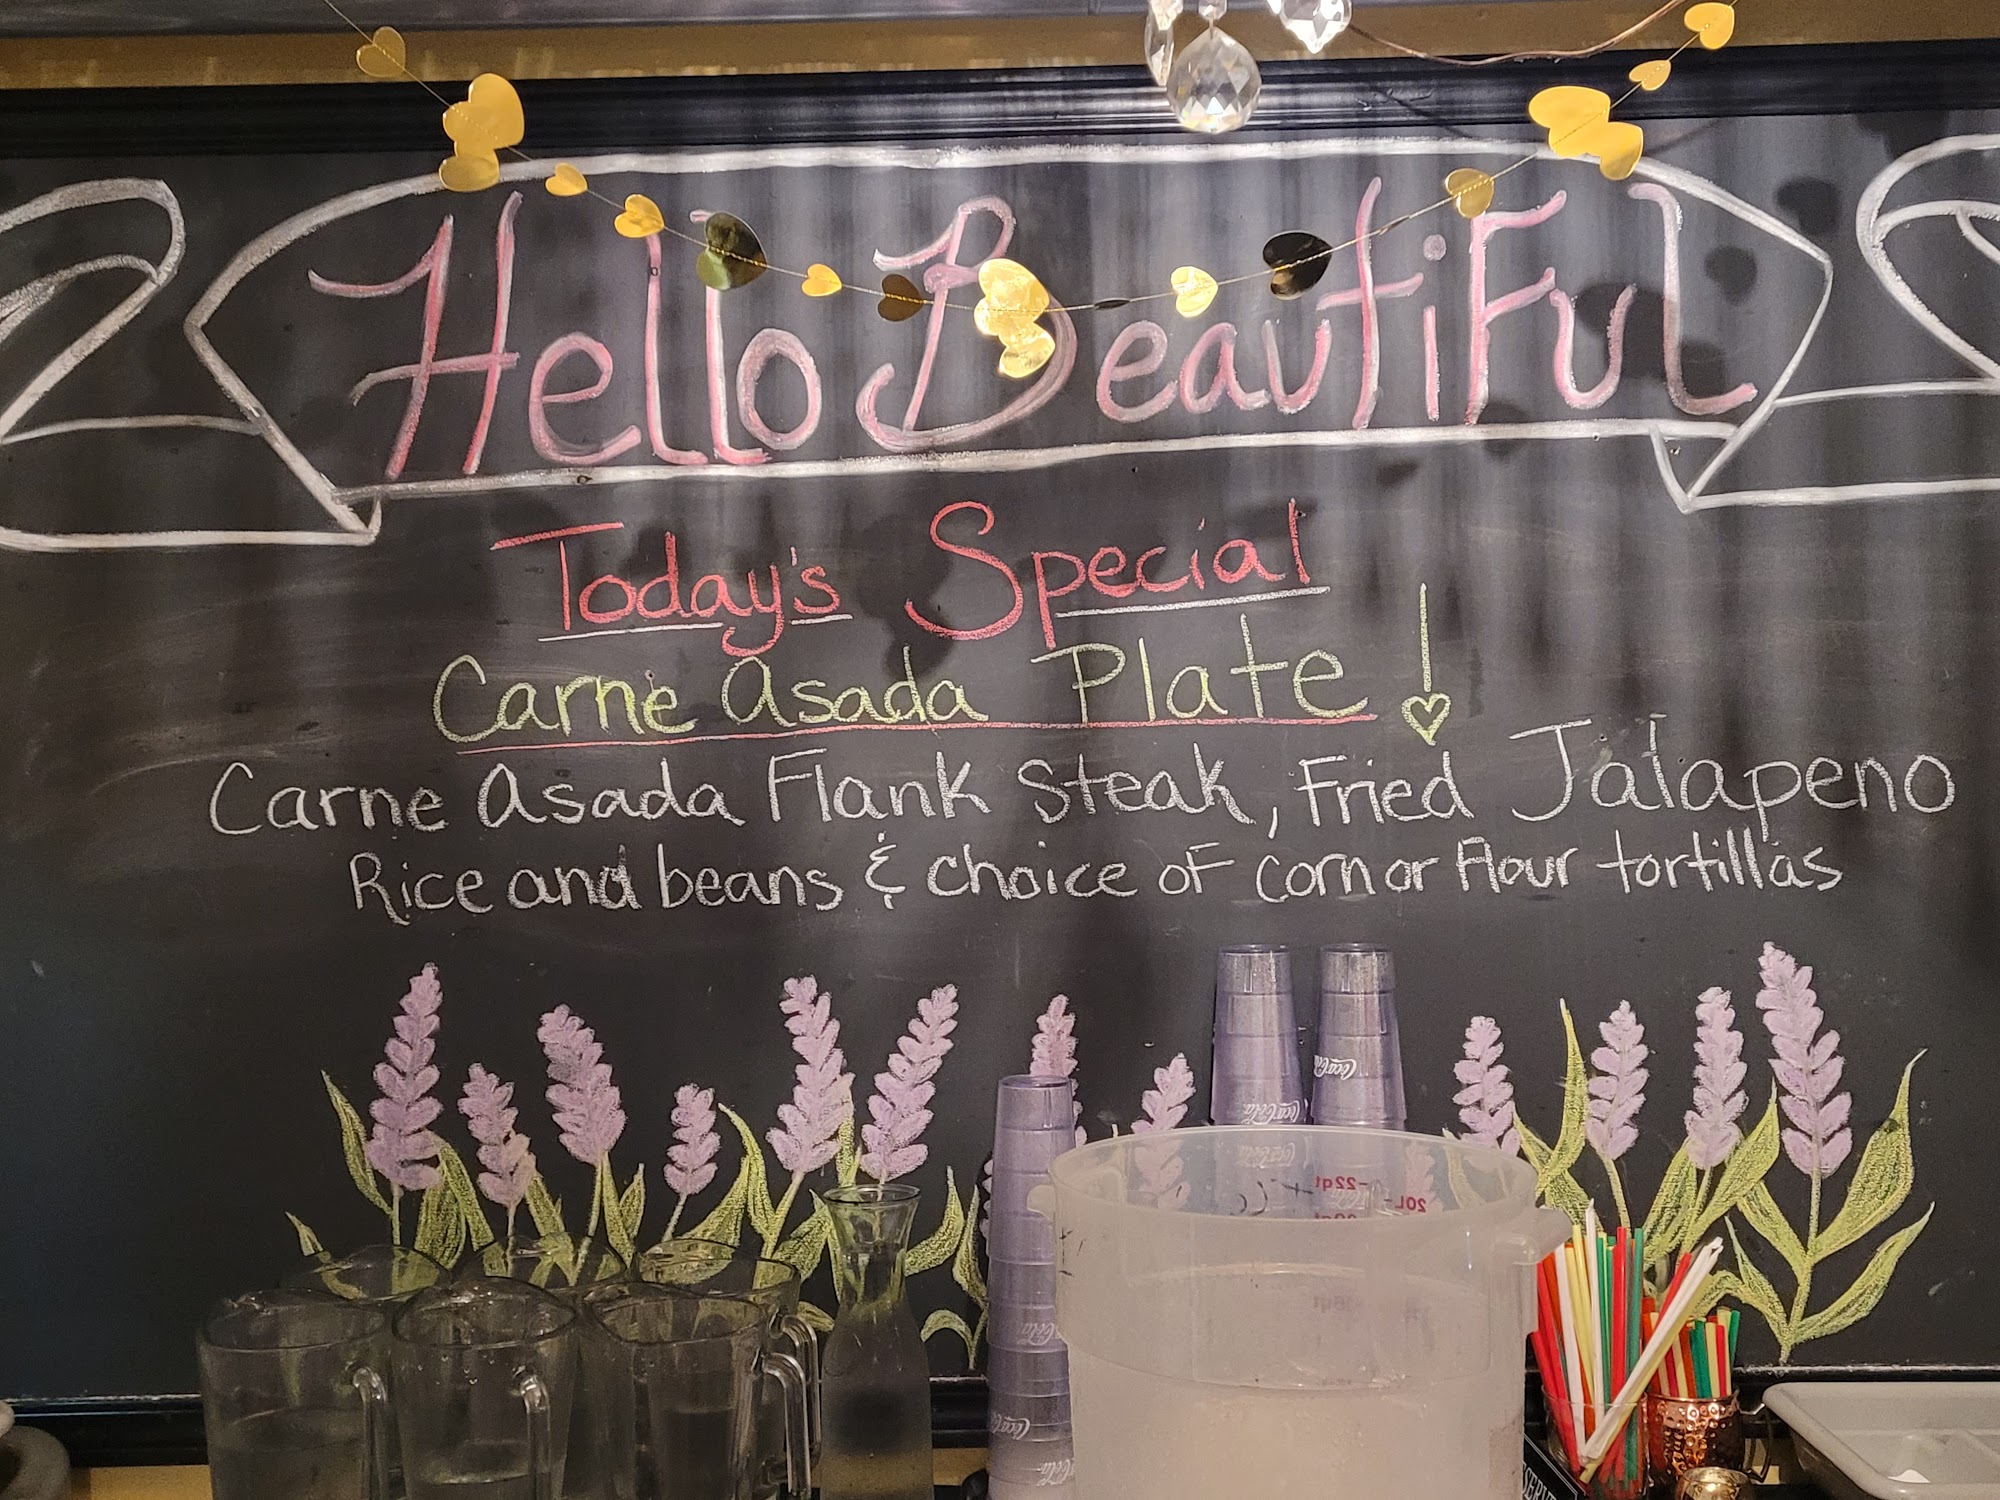 Hello BeautiFul
Today's Special
Carne Asada Plate!
Carne Asada Flank Steak, Fried Jalapeno
Rice and beans & choice oF corn or Flour tortillas
Coca-Cola
Coca-Cola
Coca-Cola
Coca-Cola
22qt
20L